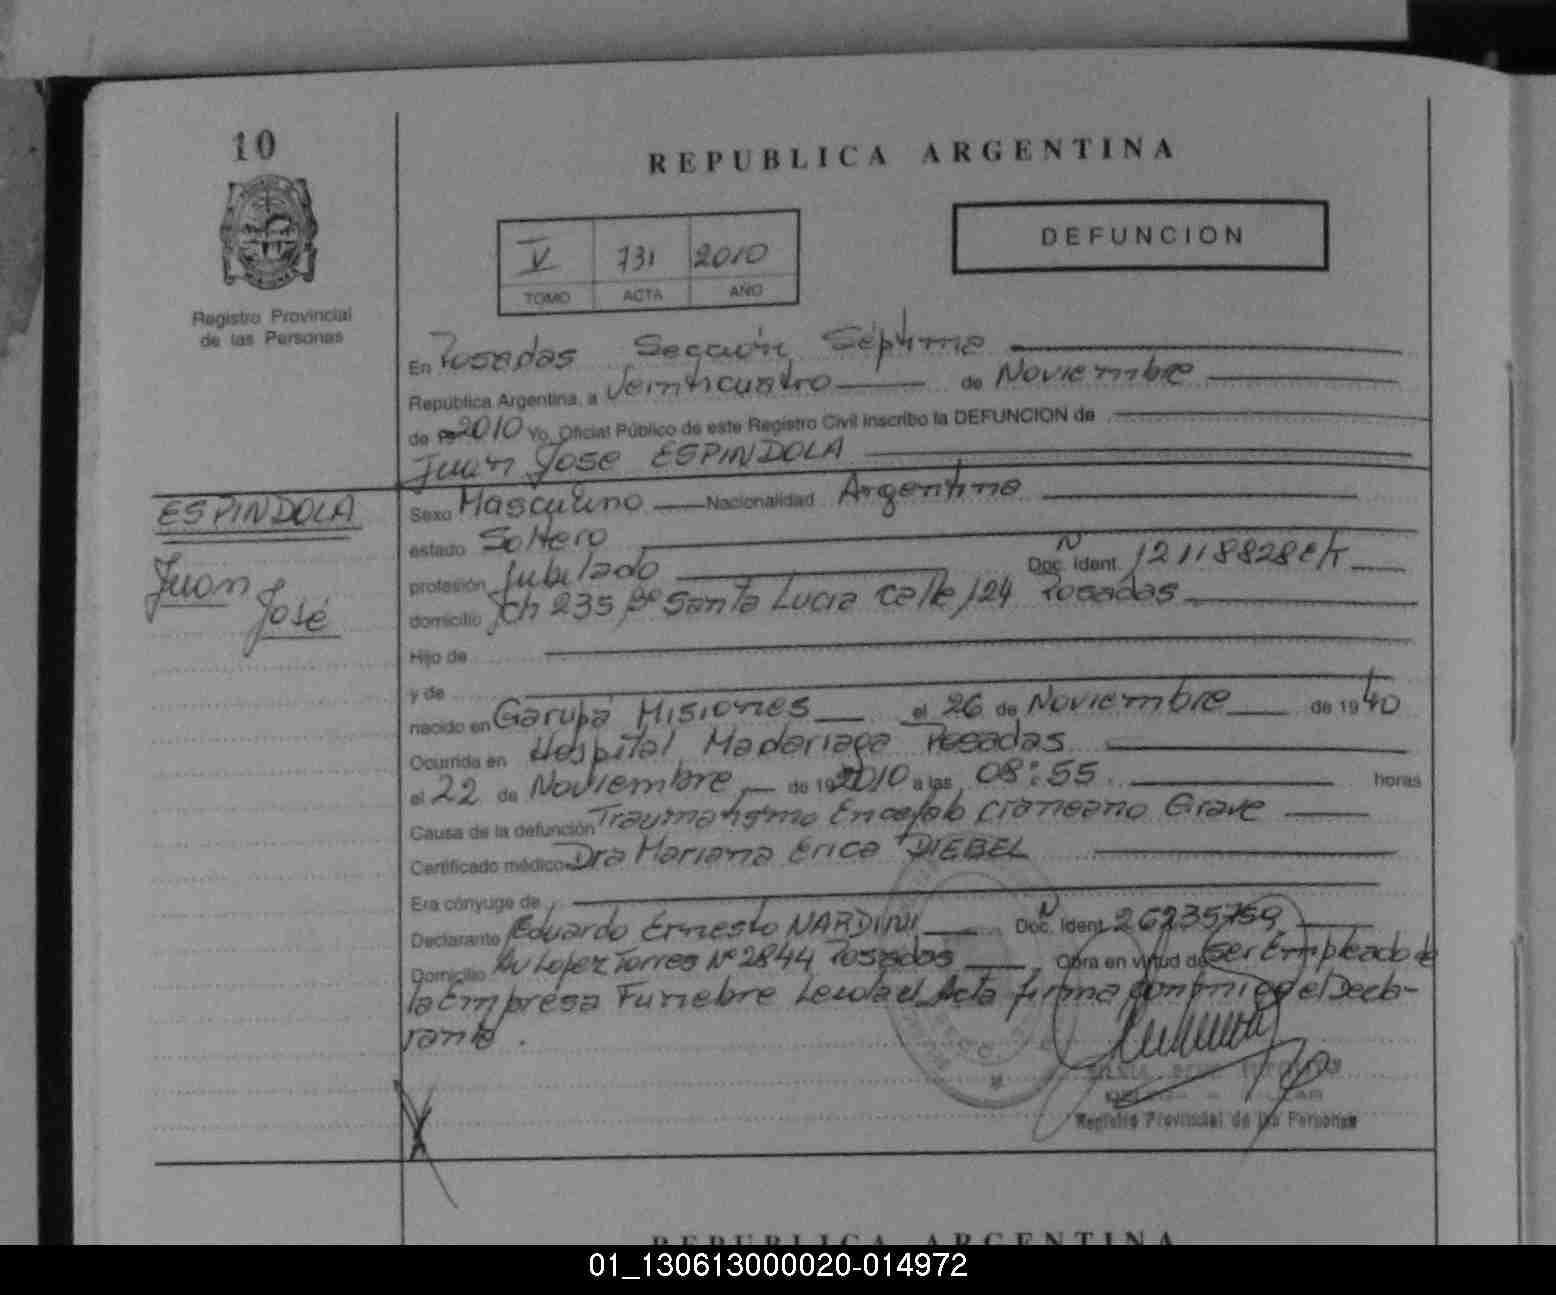 10
REPUBLICA ARGENTINA
DEFUNCION
V 731 2010
TOMO ACTA AÑO
Registro Provincial
de las Personas
En Posadas Sección Séptima
República Argentina, a Veinticuatro de Noviembre
de 2010 Yo, Oficial Público de este Registro Civil inscribo la DEFUNCION de
Juan José ESPINDOLA
ESPINDOLA
Juan
José
Sexo Masculino Nacionalidad Argentina
estado Soltero
profesión Jubilado Doc. Ident. N 12118828
domicilio Ch 235 Bº Santa Lucia calle 124 Posadas
Hijo de
y de
nacido en Garupá Misiones el 26 de Noviembre de 1940
Ocurrida en Hospital Madariaga Posadas
el 22 de Noviembre de 2010 a las 08:55 horas
Causa de la defunción Traumatismo Encefalo Craneano Grave
Certificado médico Dra Mariana Erica DIEBEL
Era cónyuge de
Declarante Eduardo Ernesto NARDINI Doc. Ident. N 26235759
Domicilio Av Lopez Torres Nº 2844 Posadas Obra en virtud de Ser Empleado de
la Empresa Funebre Leida el Acta firma conmigo el Decla-
rante.
Registro Provincial de las Personas
REPUBLICA ARGENTINA
01_130613000020-014972